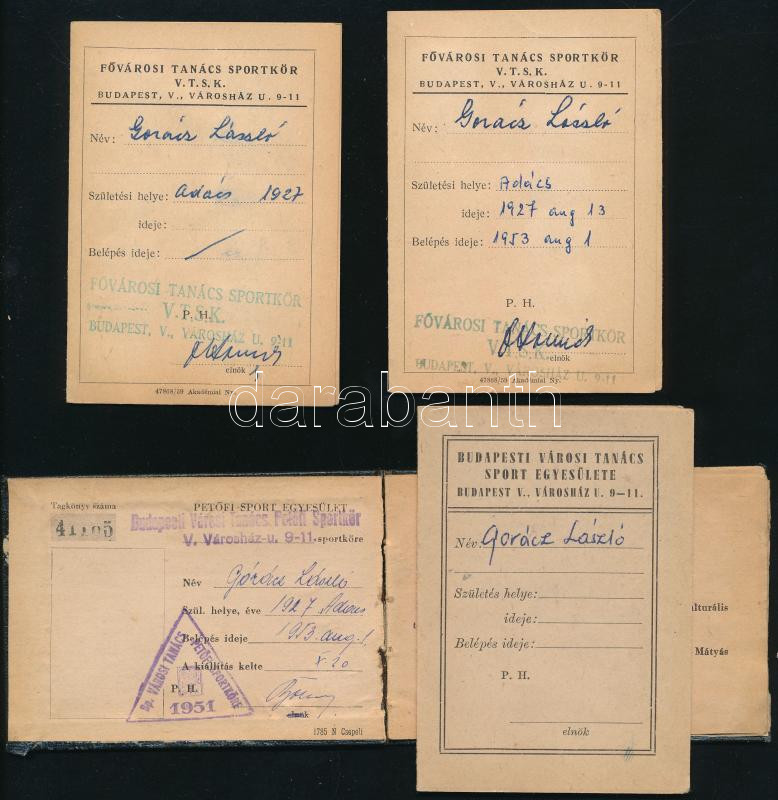 FŐVÁROSI TANÁCS SPORTKÖR
V.T.S.K.
BUDAPEST, V., VÁROSHÁZ U. 9-11
Név: Gorácz László
Születési helye: Adács 1927
ideje:
Belépés ideje:
P. H.
FŐVÁROSI TANÁCS SPORTKÖR
V.T.S.K.
BUDAPEST, V., VÁROSHÁZ U. 9-11
elnök
47868/59 Akadémiai Ny.
FŐVÁROSI TANÁCS SPORTKÖR
V.T.S.K.
BUDAPEST, V., VÁROSHÁZ U. 9-11
Név: Gorácz László
Születési helye: Adács
ideje: 1927 aug 13
Belépés ideje: 1953 aug 1
P. H.
FŐVÁROSI TANÁCS SPORTKÖR
V.T.S.K.
BUDAPEST, V., VÁROSHÁZ U. 9-11
elnök
47868/59 Akadémiai Ny.
darabanth
Tagkönyv száma
PETŐFI SPORT EGYESÜLET
Budapesti Városi Tanács Petőfi Sportkör
V. Városház-u. 9-11. sportköre
Név Górácz László
Szül. helye, éve 1927 Adács
Belépés ideje 1953. aug. 1.
A kiállítás kelte X. 20
P. H.
elnök
Bp. VÁROSI TANÁCS PETŐFI SPORTKÖRE
1951
1785 N Csepeli
BUDAPESTI VÁROSI TANÁCS
SPORT EGYESÜLETE
BUDAPEST V., VÁROSHÁZ U. 9—11.
Név: Gorácz László
Születés helye:
ideje:
Belépés ideje:
P. H.
elnök
Mátyás